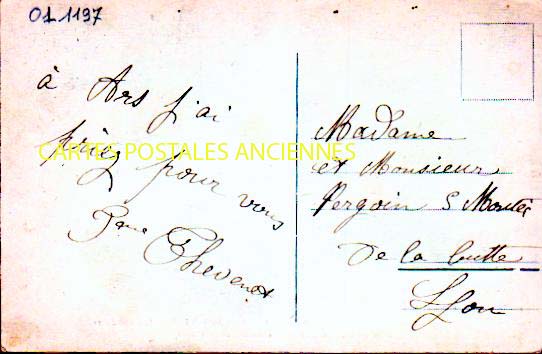 01.1197
à Ars j'ai
priez pour vous
CARTES POSTALES ANCIENNES
Thevenet
Madame
et Monsieur
Pergoin 5 Montée
de la butte
Lyon